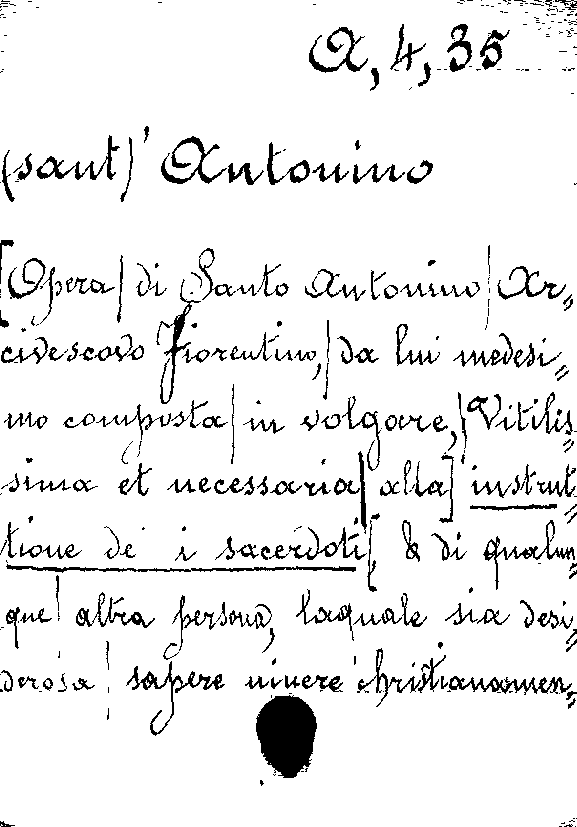 A, 4, 35
(sant)' Antonino
[Opera | di Santo Antonino | Ar=
civescovo Fiorentino, | da lui medesi=
mo composta | in volgare, | Vtilis=
sima et necessaria | alla] instrut=
tione de i sacerdoti [, & di qualun=
que | altra persona, laquale sia desi=
derosa | sapere uiuere christianamen=